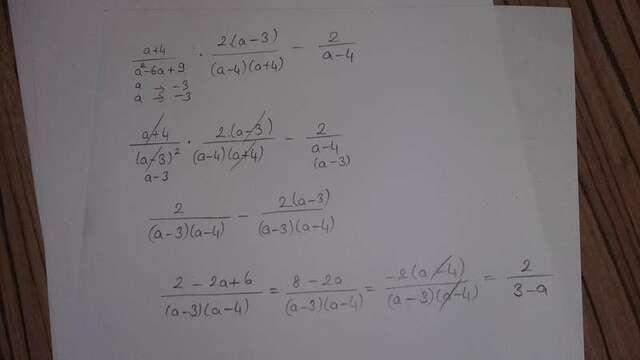 (a+4)/(a²-6a+9) · 2(a-3)/((a-4)(a+4)) - 2/(a-4)
a → -3
a → -3
(a+4)/(a-3)² · 2(a-3)/((a-4)(a+4)) - 2/(a-4)
a-3 (a-3)
2/((a-3)(a-4)) - 2(a-3)/((a-3)(a-4))
(2-2a+6)/((a-3)(a-4)) = (8-2a)/((a-3)(a-4)) = -2(a-4)/((a-3)(a-4)) = 2/(3-a)